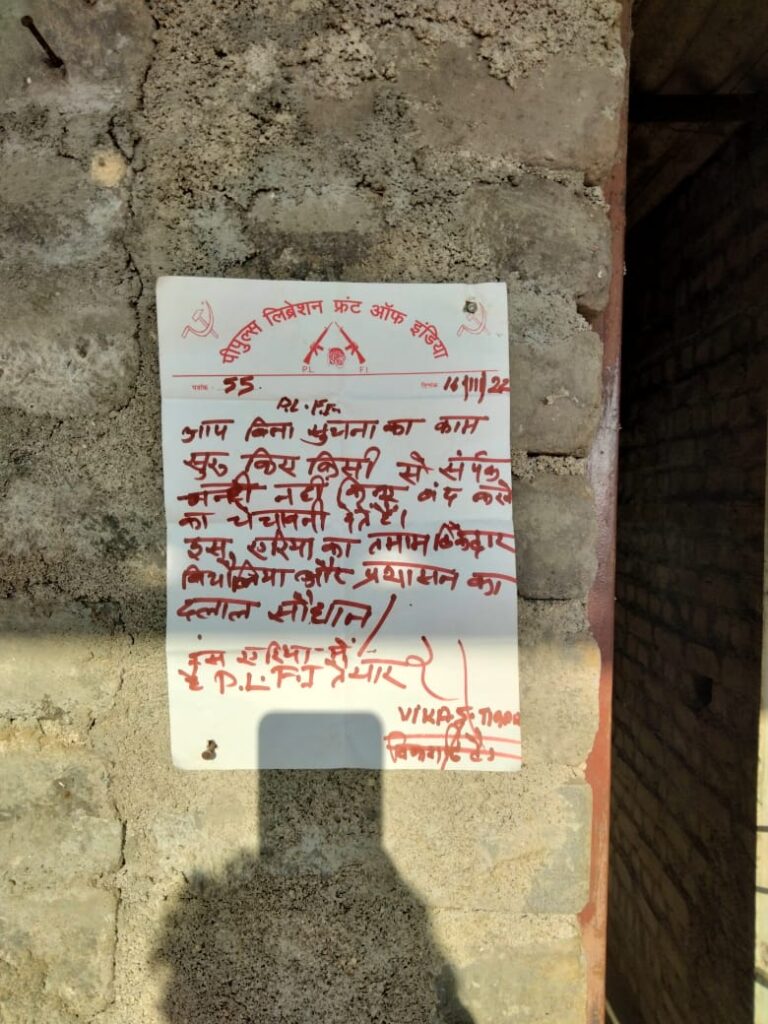 पीपुल्स लिब्रेशन फ्रंट ऑफ इंडिया
P.L. F.I
पत्रांक - 55. दिनांक 16/11/22
P.L.F.I.
आप बिना सुचना का काम
सुरु किए किसी से संर्पक
नहीं किए बंद करने
का चेचावनी देते हैं।
इस, एरिया का तमाम ठिकेदार
बिचौलिया और प्रशासन का
दलाल सौधान/
इस एरिया-में
P.L.F.I तैयार है।
VIKAS.